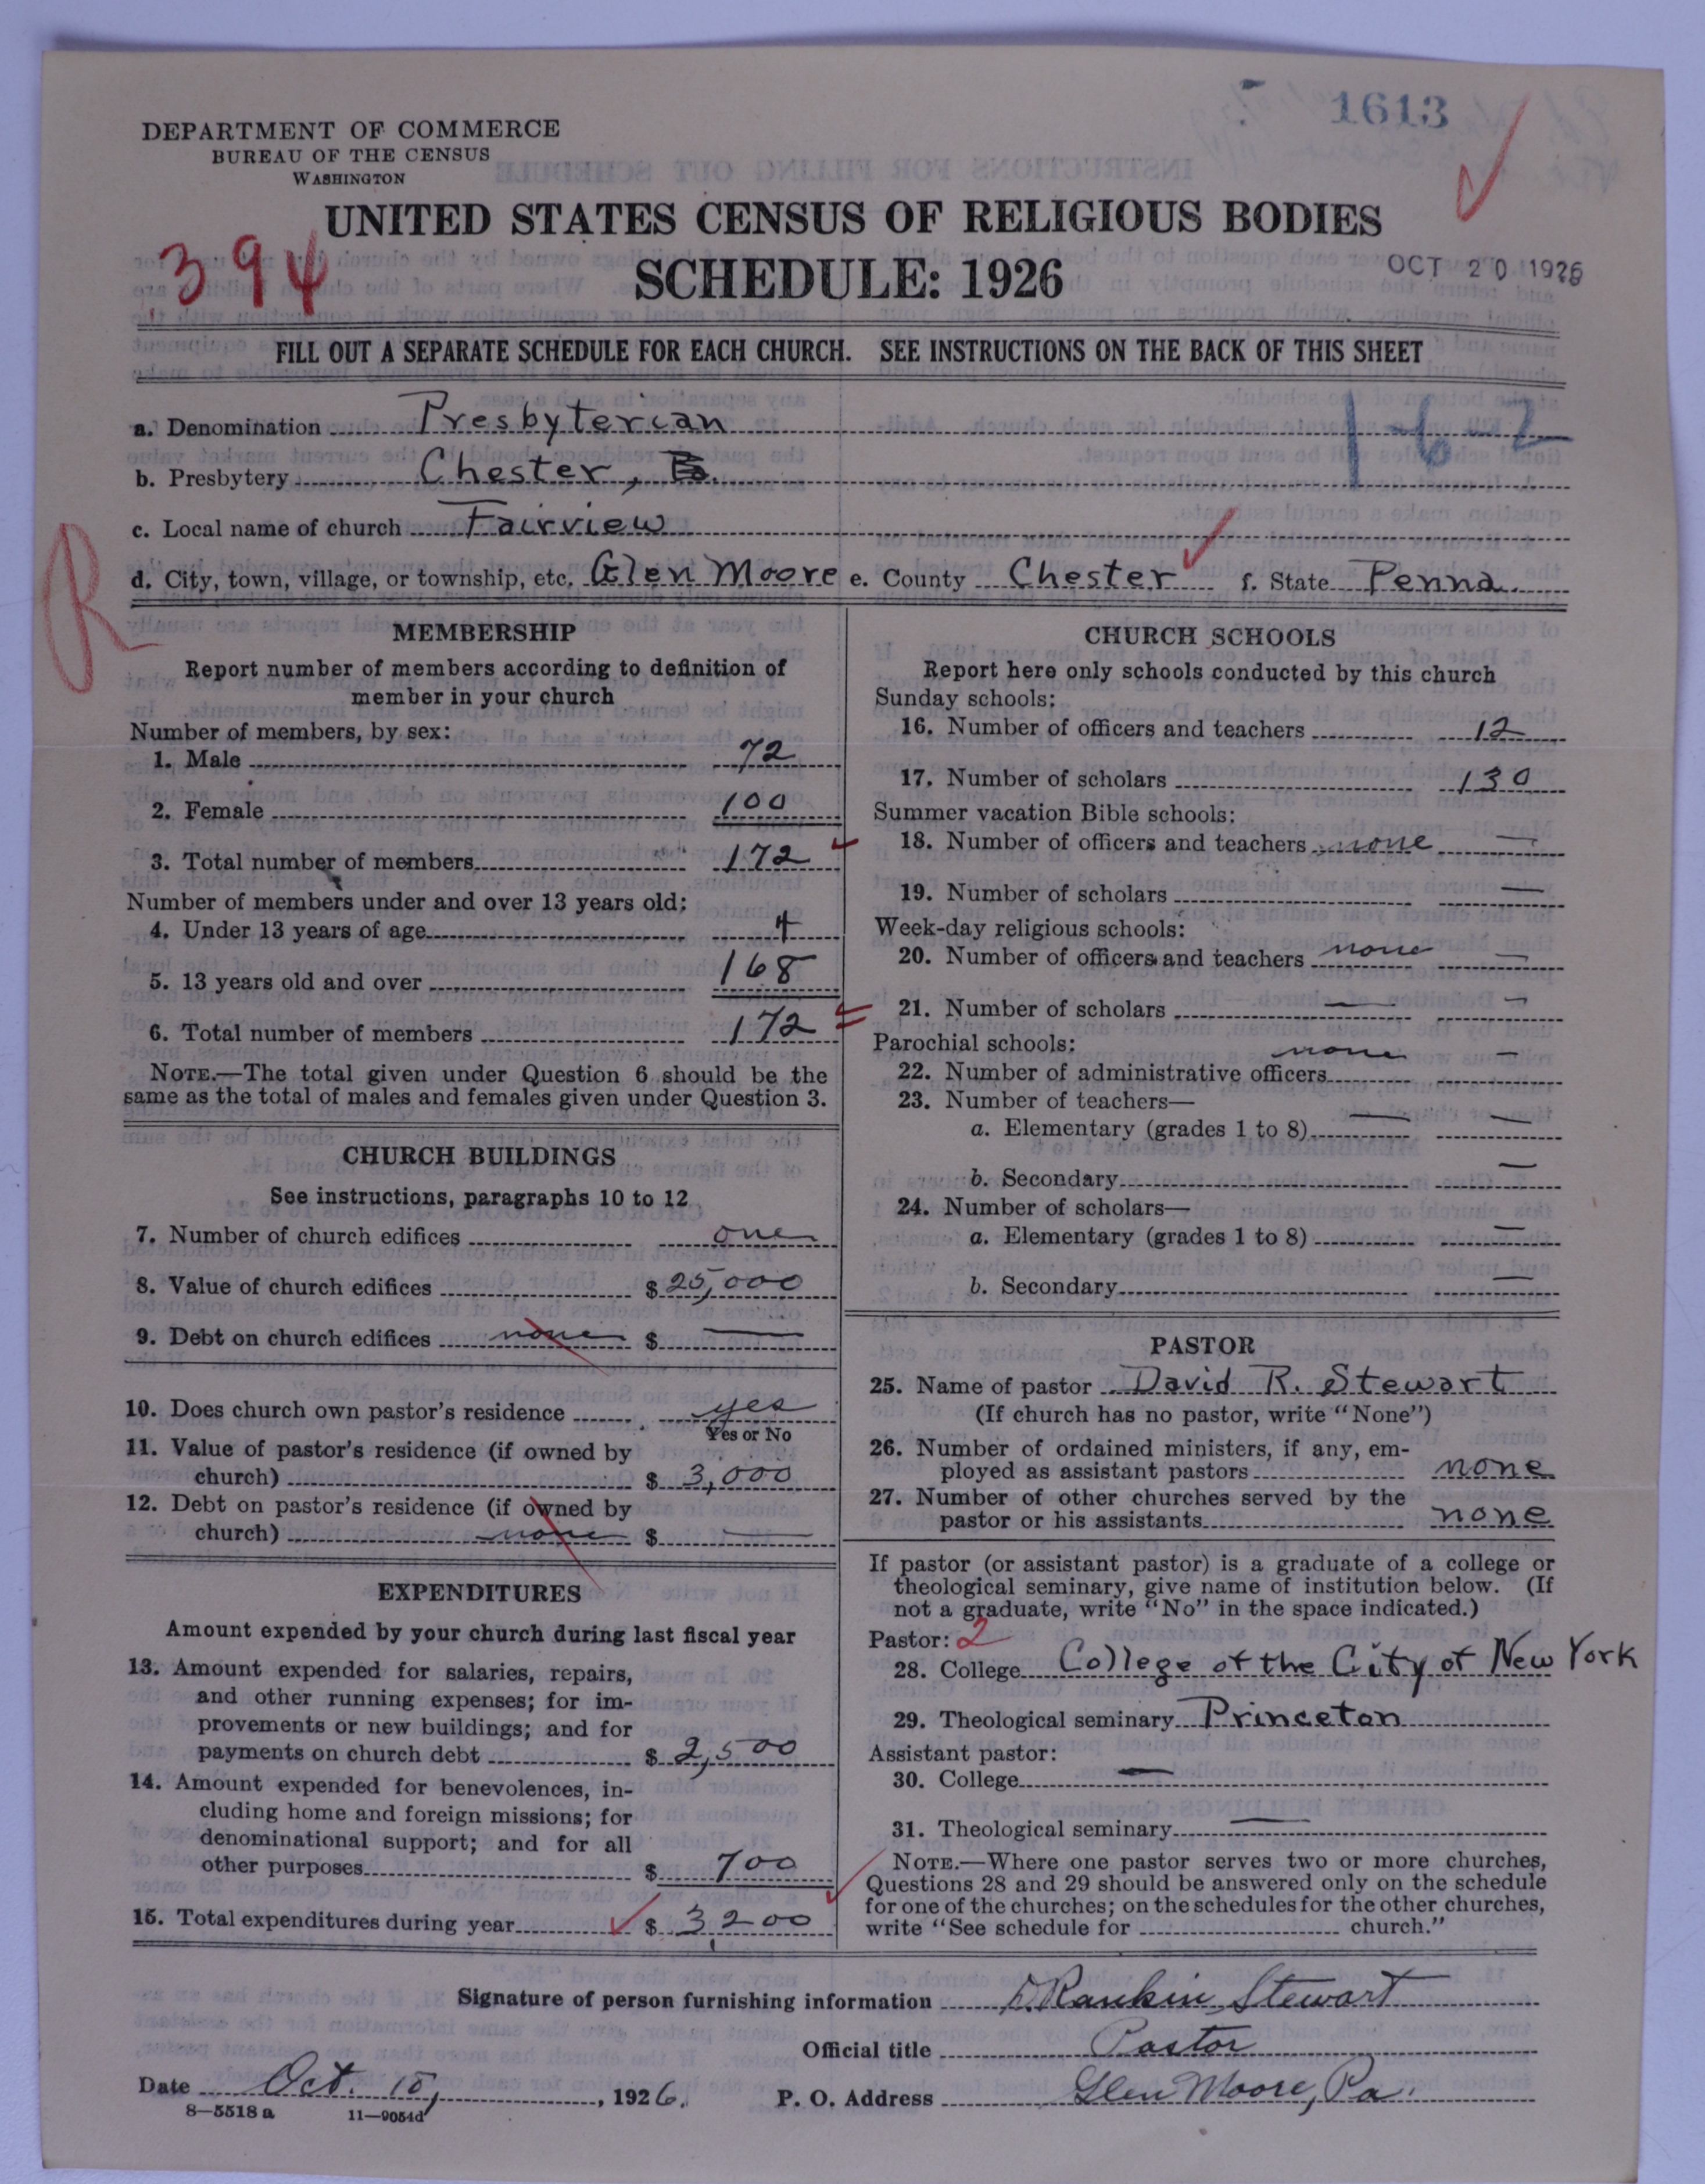 1613
DEPARTMENT OF COMMERCE
BUREAU OF THE CENSUS
WASHINGTON
UNITED STATES CENSUS OF RELIGIOUS BODIES
394
SCHEDULE: 1926
OCT 20 1926
FILL OUT A SEPARATE SCHEDULE FOR EACH CHURCH. SEE INSTRUCTIONS ON THE BACK OF THIS SHEET
a. Denomination Presbyterian
1-6-2
b. Presbytery Chester,
c. Local name of church Fairview
d. City, town, village, or township, etc. Glen Moore e. County Chester f. State Penna.
R
MEMBERSHIP
Report number of members according to definition of
member in your church
Number of members, by sex:
1. Male 72
2. Female 100
3. Total number of members 172
Number of members under and over 13 years old:
4. Under 13 years of age 4
5. 13 years old and over 168
6. Total number of members 172
NOTE.—The total given under Question 6 should be the
same as the total of males and females given under Question 3.
CHURCH BUILDINGS
See instructions, paragraphs 10 to 12
7. Number of church edifices one
8. Value of church edifices $ 25,000
9. Debt on church edifices none $ —
10. Does church own pastor's residence yes
Yes or No
11. Value of pastor's residence (if owned by
church) $ 3,000
12. Debt on pastor's residence (if owned by
church) none $ —
EXPENDITURES
Amount expended by your church during last fiscal year
13. Amount expended for salaries, repairs,
and other running expenses; for im-
provements or new buildings; and for
payments on church debt $ 2,500
14. Amount expended for benevolences, in-
cluding home and foreign missions; for
denominational support; and for all
other purposes $ 700
15. Total expenditures during year $ 3,200
CHURCH SCHOOLS
Report here only schools conducted by this church
Sunday schools:
16. Number of officers and teachers 12
17. Number of scholars 130
Summer vacation Bible schools:
18. Number of officers and teachers none —
19. Number of scholars —
Week-day religious schools:
20. Number of officers and teachers none —
21. Number of scholars — —
Parochial schools:
22. Number of administrative officers none —
23. Number of teachers—
a. Elementary (grades 1 to 8) — —
b. Secondary —
24. Number of scholars—
a. Elementary (grades 1 to 8) —
b. Secondary —
PASTOR
25. Name of pastor David R. Stewart
(If church has no pastor, write "None")
26. Number of ordained ministers, if any, em-
ployed as assistant pastors none
27. Number of other churches served by the
pastor or his assistants none
If pastor (or assistant pastor) is a graduate of a college or
theological seminary, give name of institution below. (If
not a graduate, write "No" in the space indicated.)
Pastor: 2
28. College College of the City of New York
29. Theological seminary Princeton
Assistant pastor:
30. College —
31. Theological seminary —
NOTE.—Where one pastor serves two or more churches,
Questions 28 and 29 should be answered only on the schedule
for one of the churches; on the schedules for the other churches,
write "See schedule for church."
Signature of person furnishing information D. Rankin Stewart
Official title Pastor
Date Oct. 18, 1926. P. O. Address Glen Moore, Pa.
8—5518 a 11—9054d